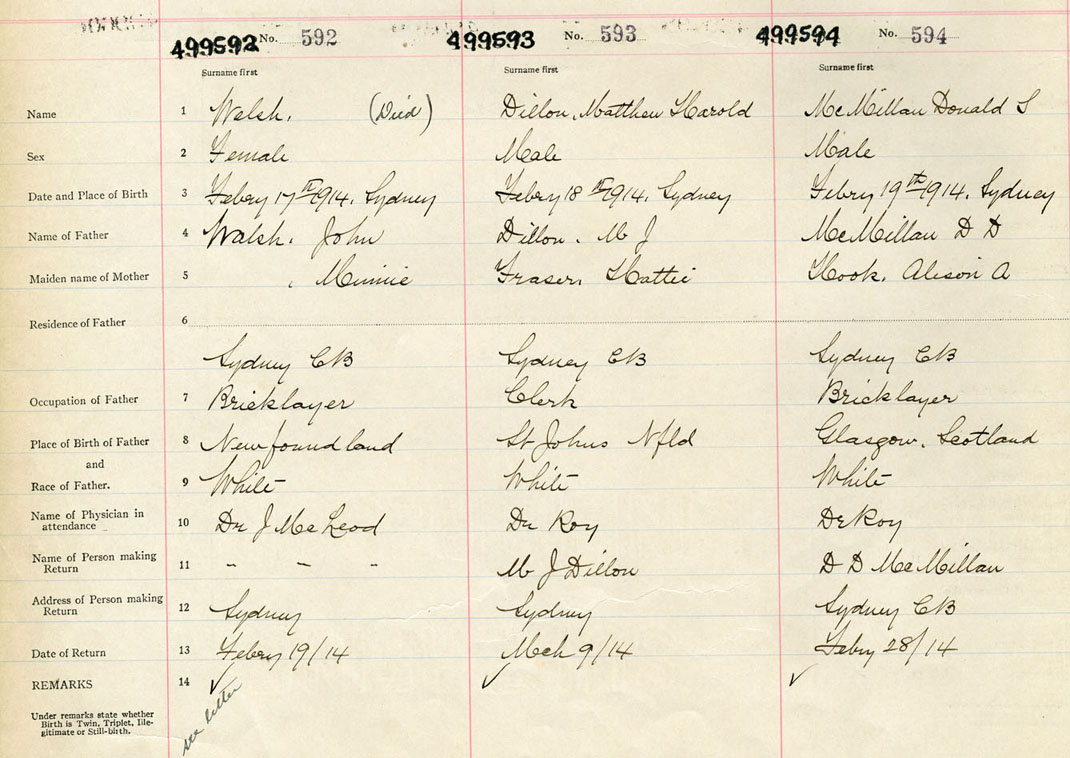 499592 No. 592 499593 No. 593 499594 No. 594
Surname first Surname first Surname first
Name 1 Walsh. (Died) Dillon, Matthew Harold McMillan Donald S
Sex 2 Female Male Male
Date and Place of Birth 3 Febry 17th 1914. Sydney Febry 18th 1914. Sydney Febry 19th 1914. Sydney
Name of Father 4 Walsh. John Dillon. M J McMillan D D
Maiden name of Mother 5 , Minnie Fraser, Hattie Hook. Alison A
Residence of Father 6
Sydney CB Sydney CB Sydney CB
Occupation of Father 7 Bricklayer Clerk Bricklayer
Place of Birth of Father 8 Newfoundland St Johns Nfld Glasgow. Scotland
and
Race of Father. 9 White White White
Name of Physician in
attendance 10 Dr J McLeod Dr Roy Dr Roy
Name of Person making
Return 11 - - - M J Dillon D D McMillan
Address of Person making
Return 12 Sydney Sydney Sydney CB
Date of Return 13 Febry 19/14 Mch 9/14 Febry 28/14
REMARKS 14 ✓ ✓ ✓
see letter
Under remarks state whether
Birth is Twin, Triplet, Ille-
gitimate or Still-birth.